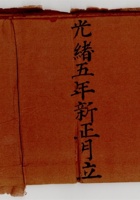 光緒五年新正月立